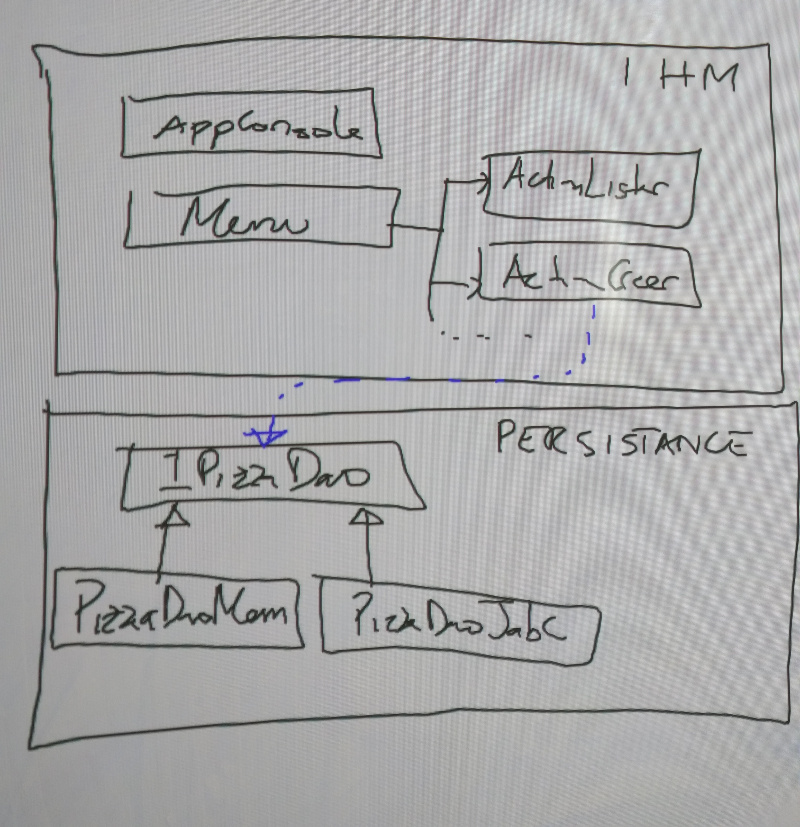 IHM
AppConsole
ActionLister
Menu
ActionCreer
PERSISTANCE
IPizzaDao
PizzaDaoMem
PizzaDaoJdbC